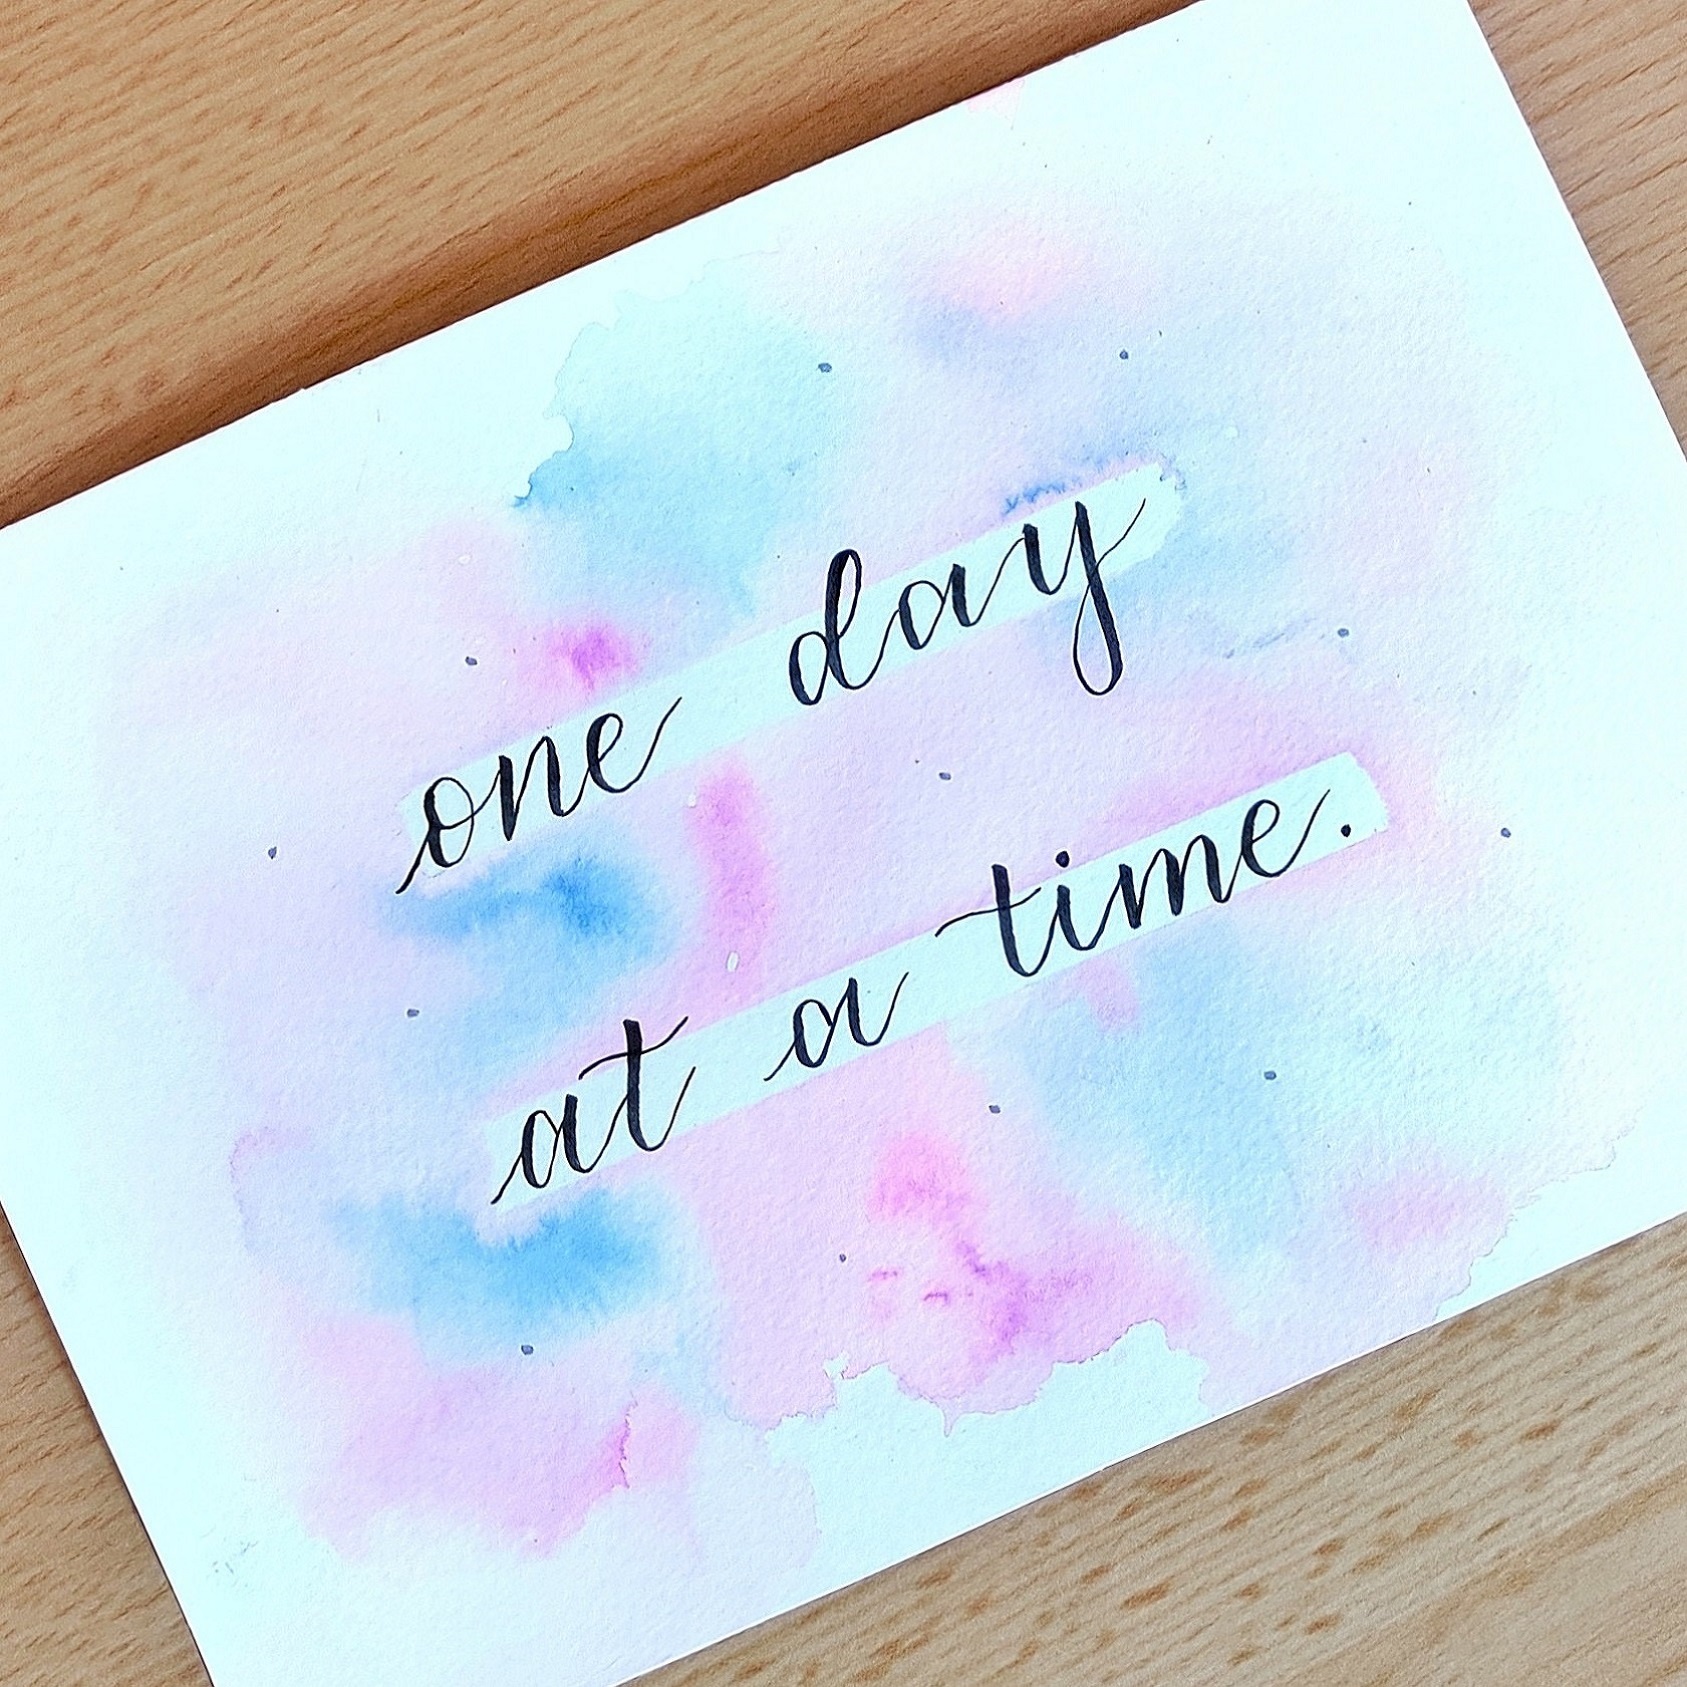 one day
at a time.